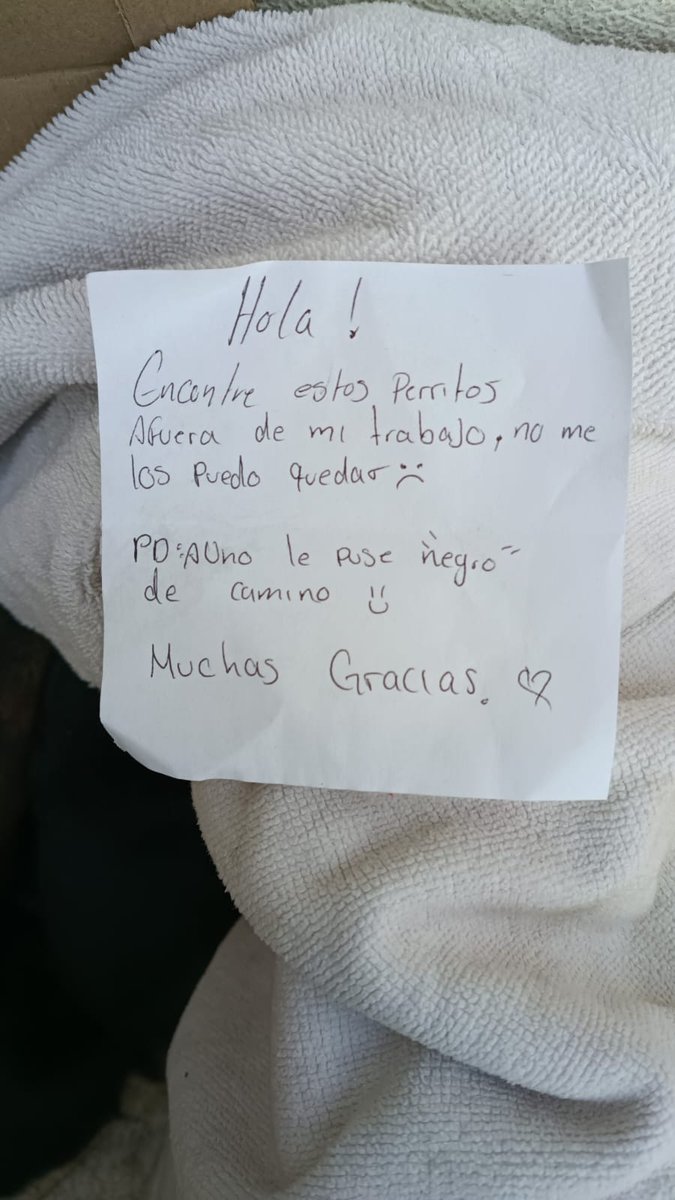 Hola!
Encontre estos Perritos
Afuera de mi trabajo, no me
los Puedo quedar :(
PD: A Uno le puse "negro"
de camino :)
Muchas Gracias. ♡